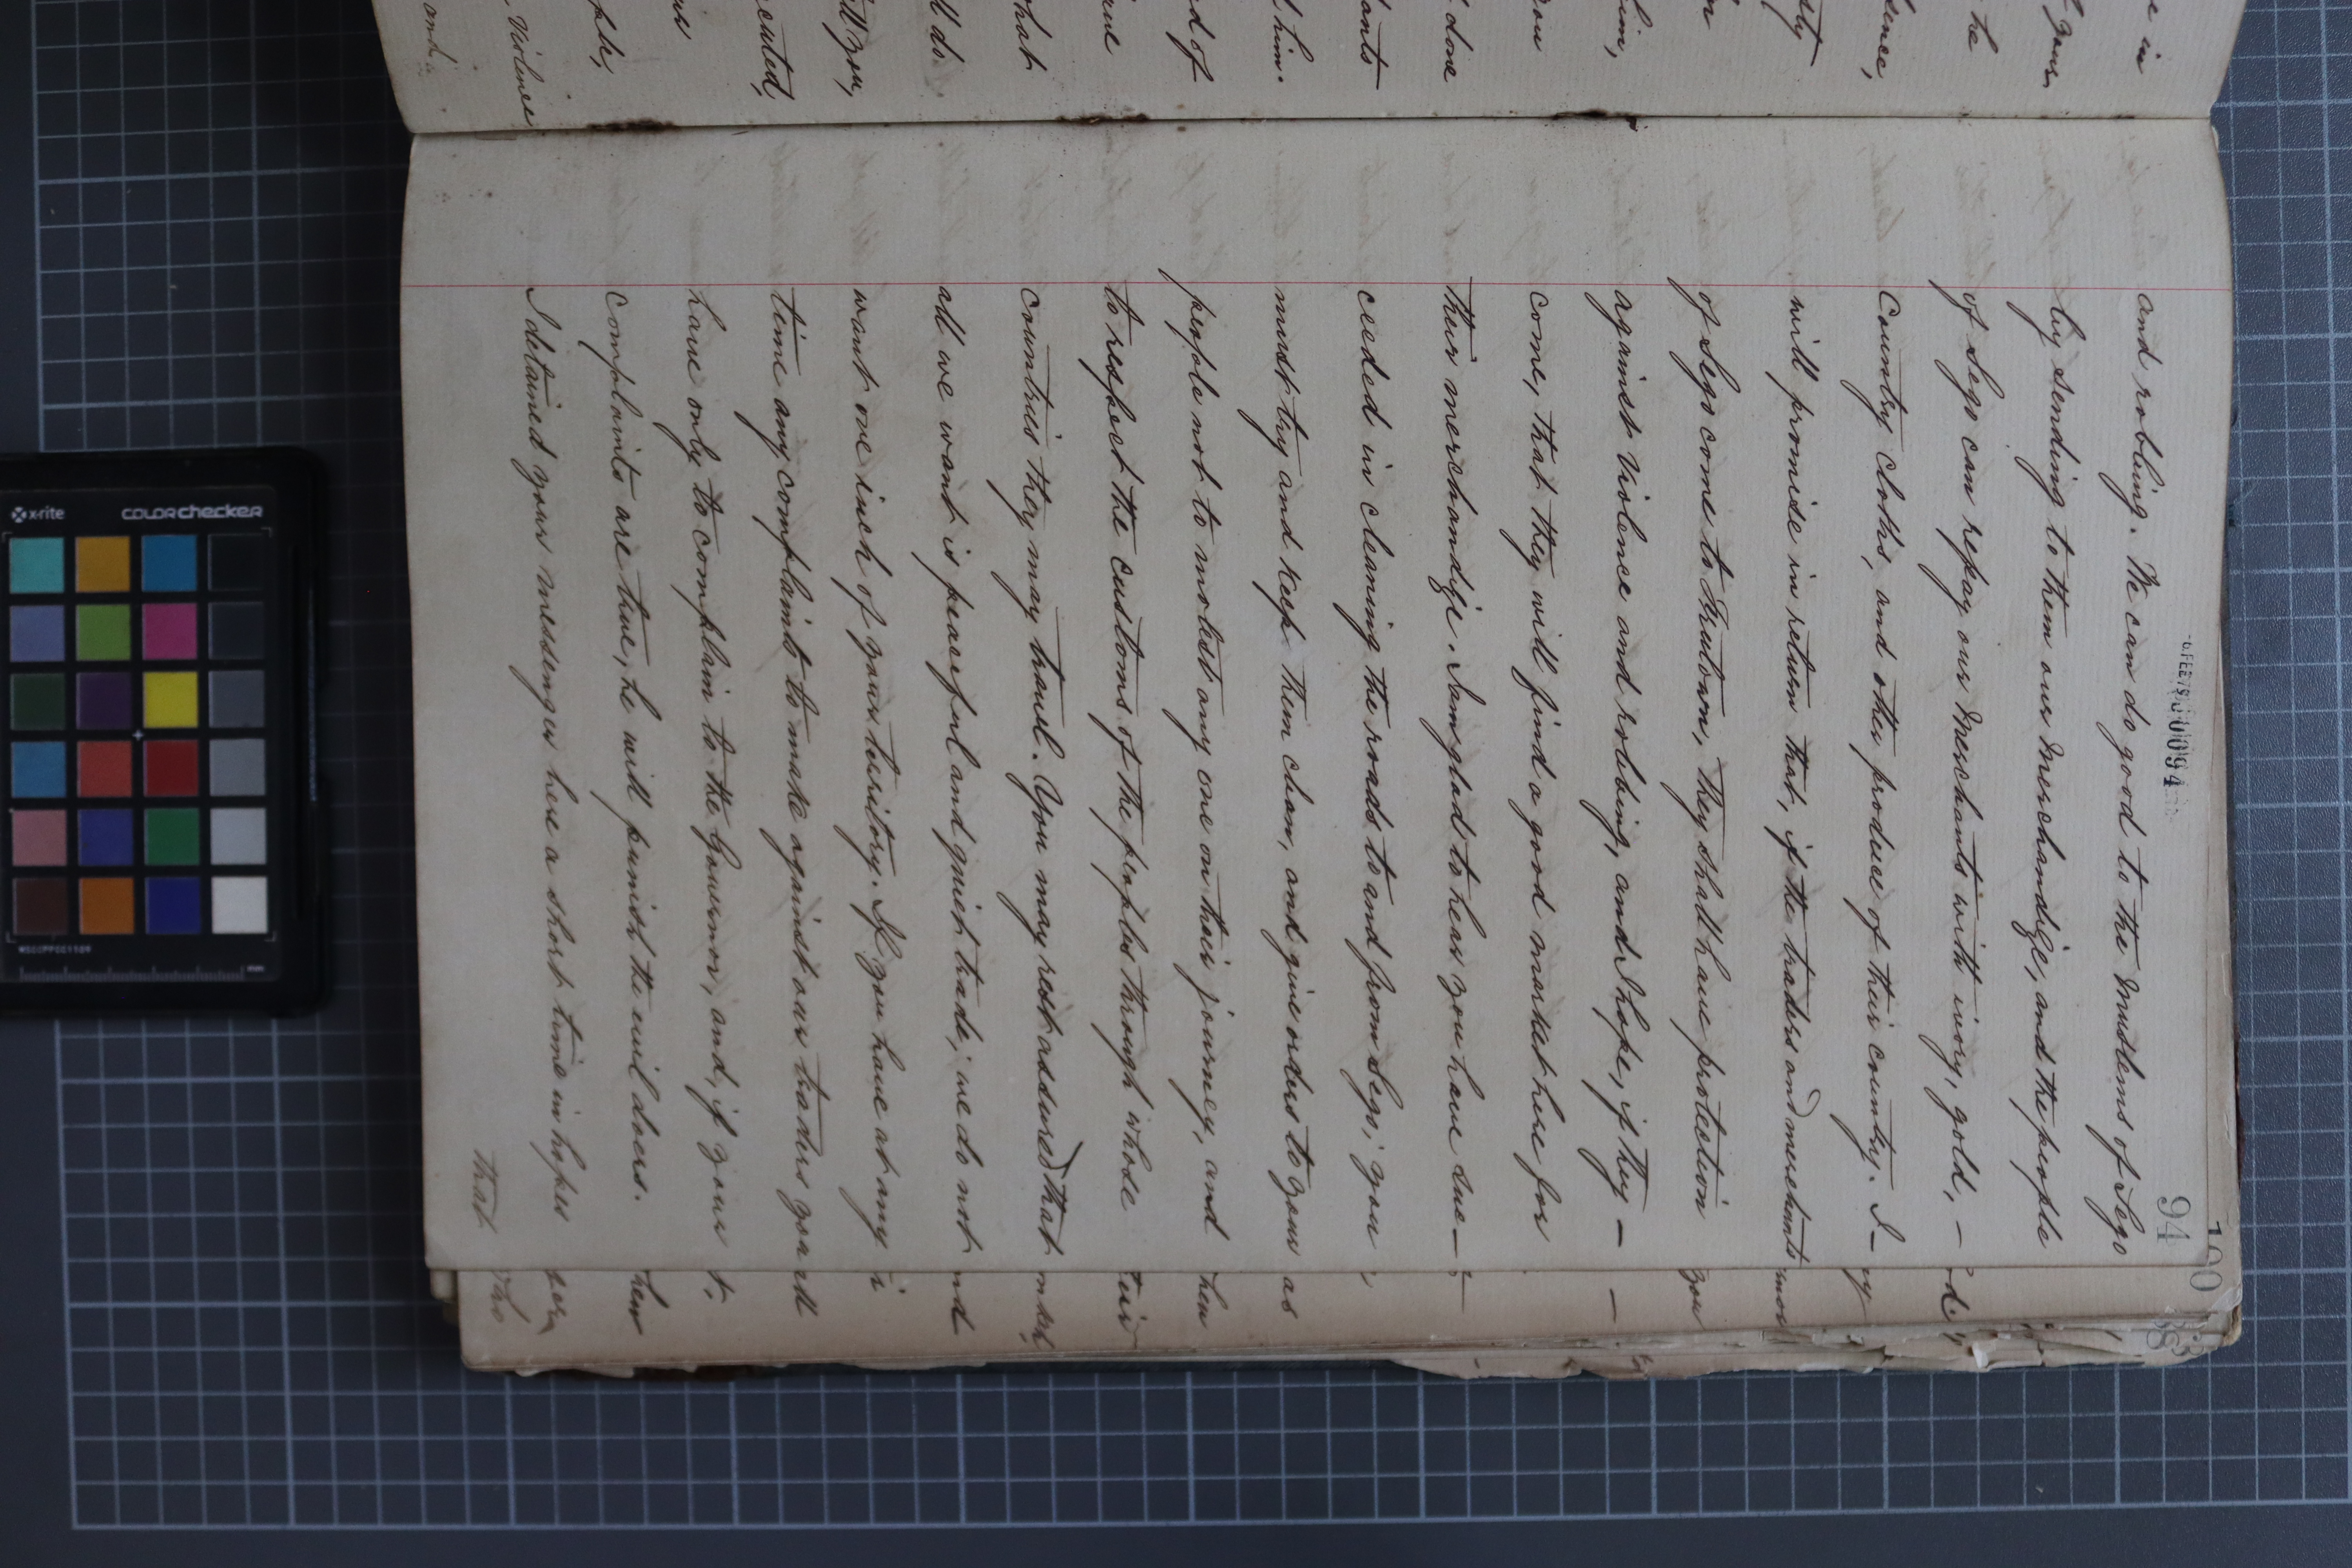 94
00094
and robbing. We can do good to the Muslems of Sego
by sending to them our Merchandize, and the people
of Sego can repay our Merchants with ivory, gold, —
Country cloths, and other produce of their country. I —
will promise in return that, if the traders and merchants
of Sego come to Freetown, they shall have protection
against violence and robbing, and I hope, if they —
come, that they will find a good market here for
their merchandize. I am glad to hear you have suc—
ceeded in cleaning the roads to and from Sego; you
must try and keep them clean, and give orders to your
people not to molest any one on their journey, and
to respect the customs of the peoples through whose
Countries they may travel. You may rest assured that
all we want is peaceful and quiet trade; we do not
want one inch of your territory. If you have at any
time any complaints to make against our traders you
have only to complain to the Governor, and, if your
complaints are true, he will punish the evil doers.
I detained your messenger here a short time in hopes
that
100
e in
your
he
dence,
him,
you
done
him.
nd of
that
ll do.
ill you,
cuted,
Violence
and
you
as
them
their
nd
them
The
x-rite
colorchecker
MSCCPPCC1109
mm